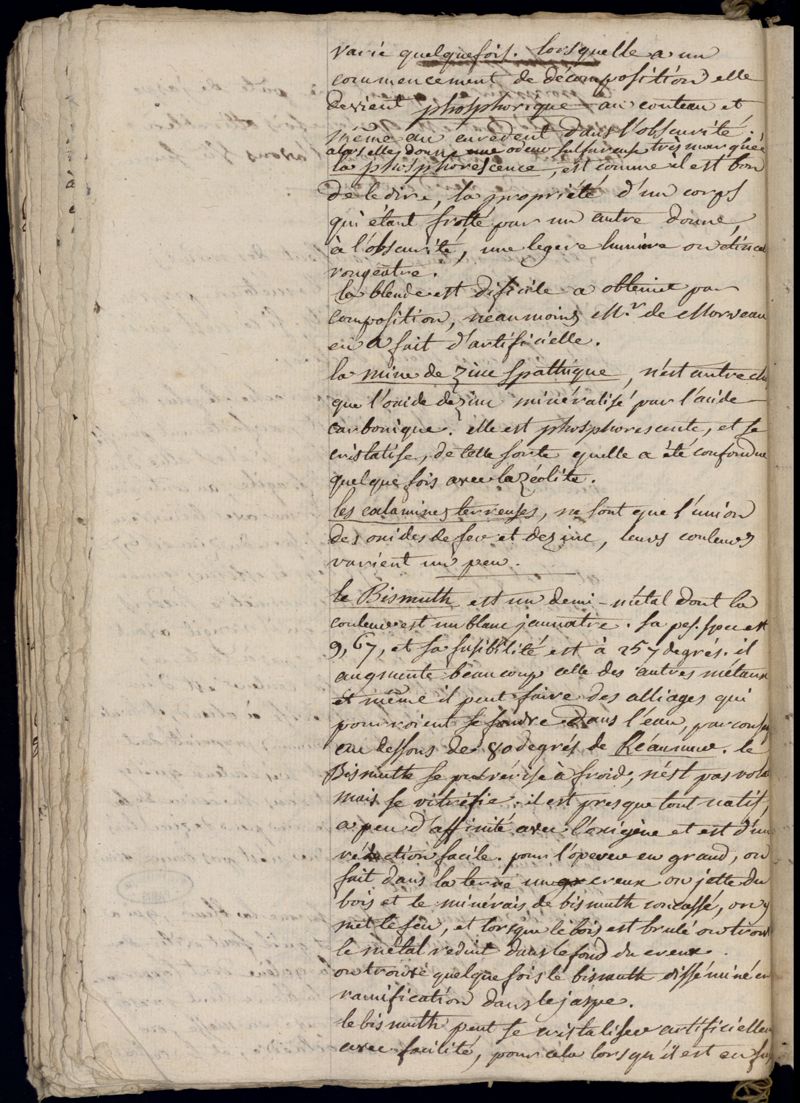 varie quelquefois. lorsquelle a un
commencement de décomposition elle
devient phosphorique au couteau et
même au curedent dans l'obscurité.
alors elle donne une odeur sulfureuse très marquée
la phosphorescence, est comme il est bon
de le dire, la propriété d'un corps
qui étant frotté par un autre donne,
à l'obscurité, une legere lumiere ou étincel
rougeatre.
la blende est dificile a obtenir par
composition, neaumoins Mr. de Morveau
en a fait d'artificielle.
la mine de zinc spathique, n'est autre ch
que l'oxide de zinc minéralisé par l'acide
carbonique. elle est phosphorescente, et se
cristalise, de telle sorte quelle a été confondue
quelque fois avec la zéolite.
les calamines terreuses, ne sont que l'union
des oxides de fer et de zinc, leurs couleurs
varient un peu.
le Bismuth est un demi-métal dont la
couleur est un blanc jaunatre. sa pes. spec. est
9,67, et sa fusibilité est à 257 degrés. il
augmente beaucoup celle des autres métaux
et même il peut faire des alliages qui
pourroient se fondre dans l'eau, par conséq
au dessous de 80 degrés de Réaumur. le
Bismuth se pulvérise à froid, n'est pas vola
mais se vitréfie. il est presque tout natif,
a peu d'affinité avec l'oxigène et est d'un
réduction facile. pour l'operer en grand, on
fait dans la terre un creux on jette du
bois et le minerais de bismuth concassé, on y
met le feu, et lorsque le bois est brulé on trouv
le métal reduit dans le fond du creux.
on trouve quelque fois le bismuth disséminé en
ramification dans le jaspe.
le bismuth peut se cristaliser artificiellem
avec facilité, pour cela lorsqu'il est en fus